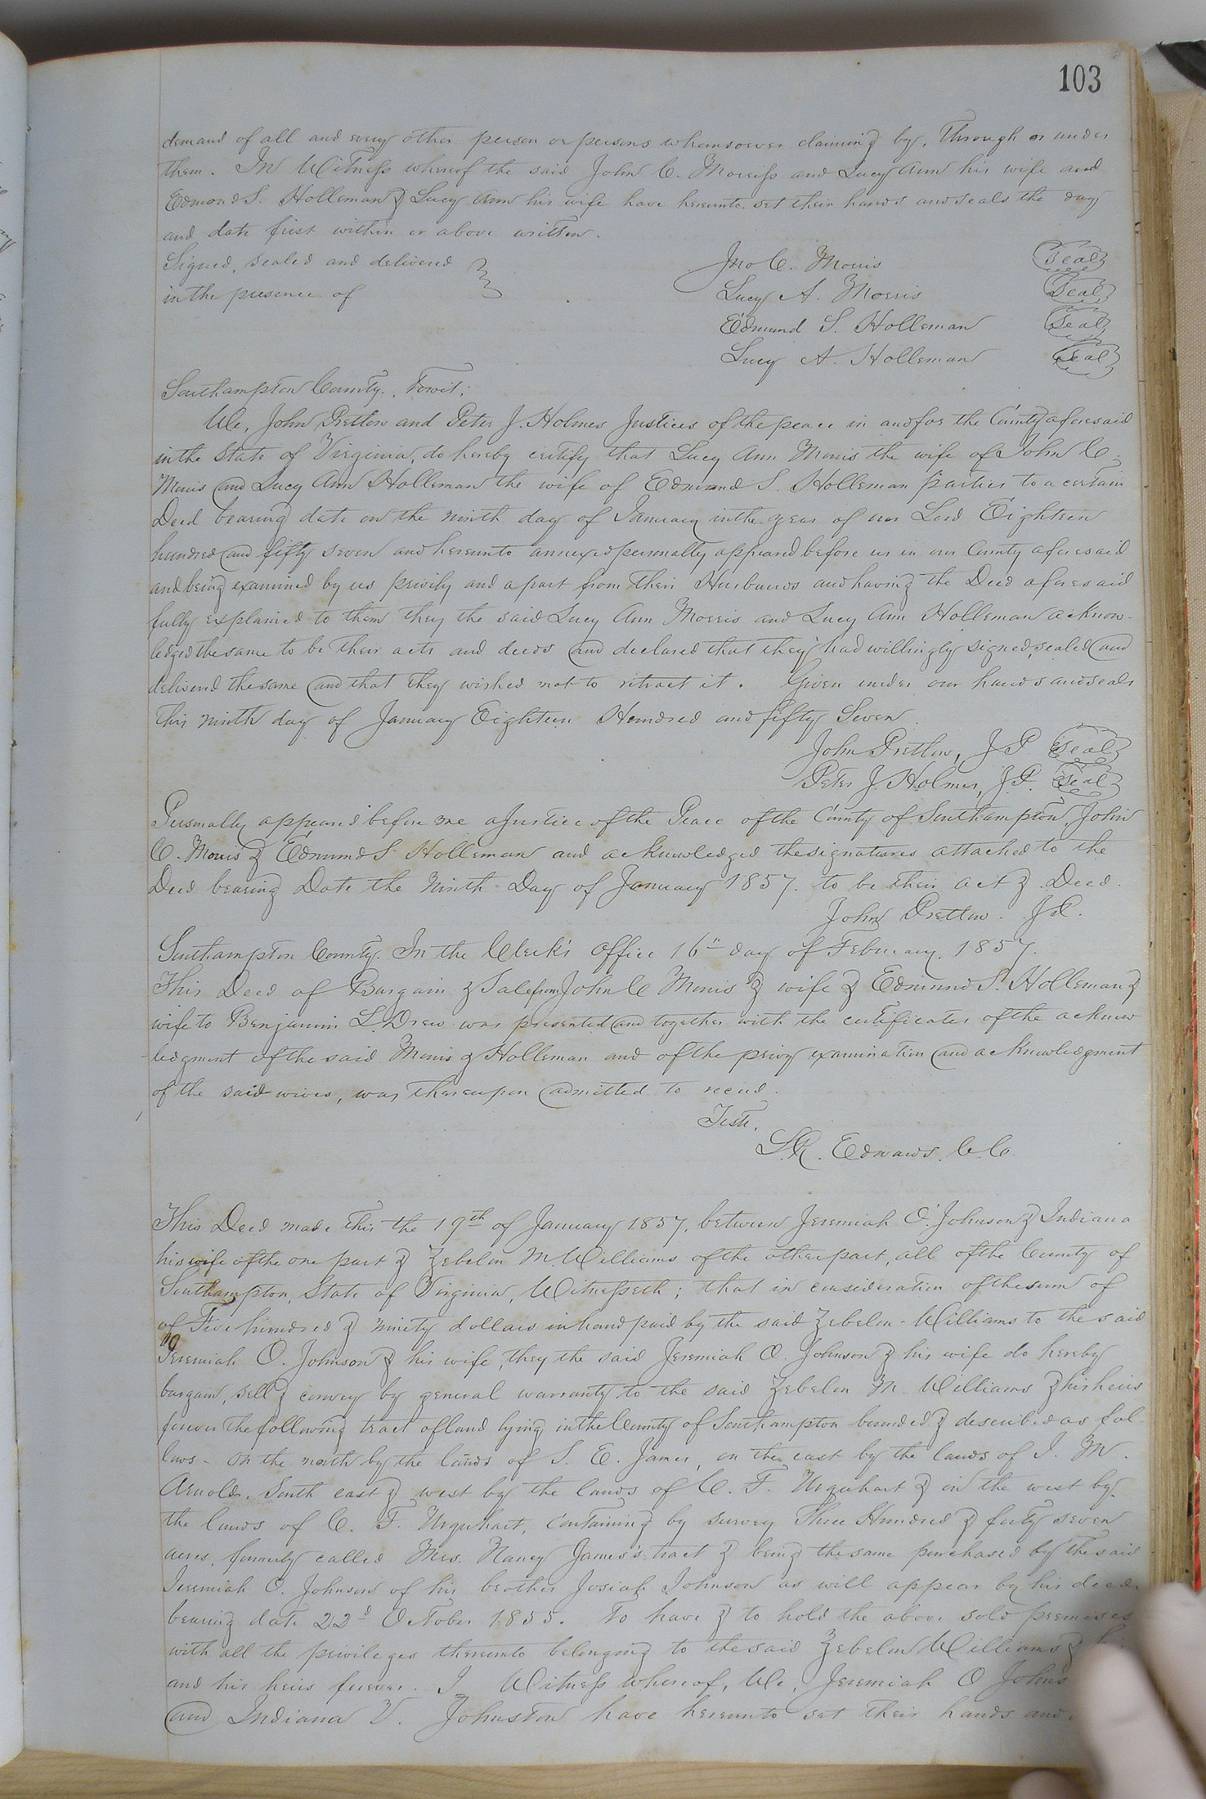 103
demand of all and every other person or persons whomsoever claiming by, through or under
them. In Witness whereof the said John C. Morriss and Lucy Ann his wife and
Edmond S. Holleman & Lucy Ann his wife have hereunto set their hands and seals the day
and date first within or above written.
Signed, sealed and delivered
in the presence of
Jno C. Morris Seal
Lucy A. Morris Seal
Edmund S. Holleman Seal
Lucy A. Holleman Seal
Southampton County. Towit:
We, John Pretlow and Peter J. Holmes Justices of the peace in and for the County aforesaid
in the State of Virginia, do hereby certify that Lucy Ann Morris the wife of John C.
Morris and Lucy Ann Holleman the wife of Edmund S. Holleman parties to a certain
Deed bearing date on the ninth day of January in the year of our Lord Eighteen
hundred and fifty seven and hereunto annexed personally appeared before us in our County aforesaid
and being examined by us privily and apart from their Husbands and having the Deed aforesaid
fully explained to them they the said Lucy Ann Morris and Lucy Ann Holleman acknow-
ledged the same to be their acts and deeds and declared that they had willingly signed, sealed and
delivered the same and that they wished not to retract it. Given under our hands and seals
this ninth day of January Eighteen Hundred and fifty Seven.
John Pretlow, J P Seal
Peter J Holmes, J.P. Seal
Personally appeared before me a Justice of the Peace of the County of Southampton, John
C. Morris & Edmund S Holleman and acknowledged the signatures attached to the
Deed bearing Date the Ninth Day of January 1857. to be their act & Deed.
John Pretlow. J.P.
Southampton County. In the Clerk's Office 16" day of February. 1857.
This Deed of Bargain & Sale from John C Morris & wife & Edmund S. Holleman &
wife to Benjamin L. Drew was presented and together with the certificates of the acknow
ledgment of the said Morris & Holleman and of the privy examination and acknowledgment
of the said wives, was thereupon admitted to record.
Teste.
L. R. Edwards. C. C.
This Deed made this the 19th of January 1857, between Jeremiah O. Johnson & Indiana
his wife of the one part & Zebelon M. Williams of the other part, all of the County of
Southampton, State of Virginia, Witnesseth; that in consideration of the sum of
of Five hundred & ninety dollars in hand paid by the said Zebelon Williams to the said
Jeremiah O. Johnson & his wife, they the said Jeremiah O. Johnson & his wife do hereby
bargain, sell & convey by general warranty to the said Zebelon M. Williams & his heirs
forever the following tract of land lying in the County of Southampton bounded & described as fol-
lows - on the north by the lands of S. E. James, on the east by the lands of I. M.
Arnold, South east & west by the lands of C. F. Urquhart & on the west by
the lands of C. F. Urquhart, containing by survey Three Hundred & forty seven
acres, formerly called Mrs. Nancy James's tract & being the same purchased by the said
Jeremiah O. Johnson of his brother Josiah Johnson as will appear by his deed
bearing date 22d October 1855. To have & to hold the above sold premises
with all the privileges thereunto belonging to the said Zebelon Williams &
and his heirs forever. I Witness whereof, We, Jeremiah O Johns
and Indiana V. Johnston have hereunto set their hands and